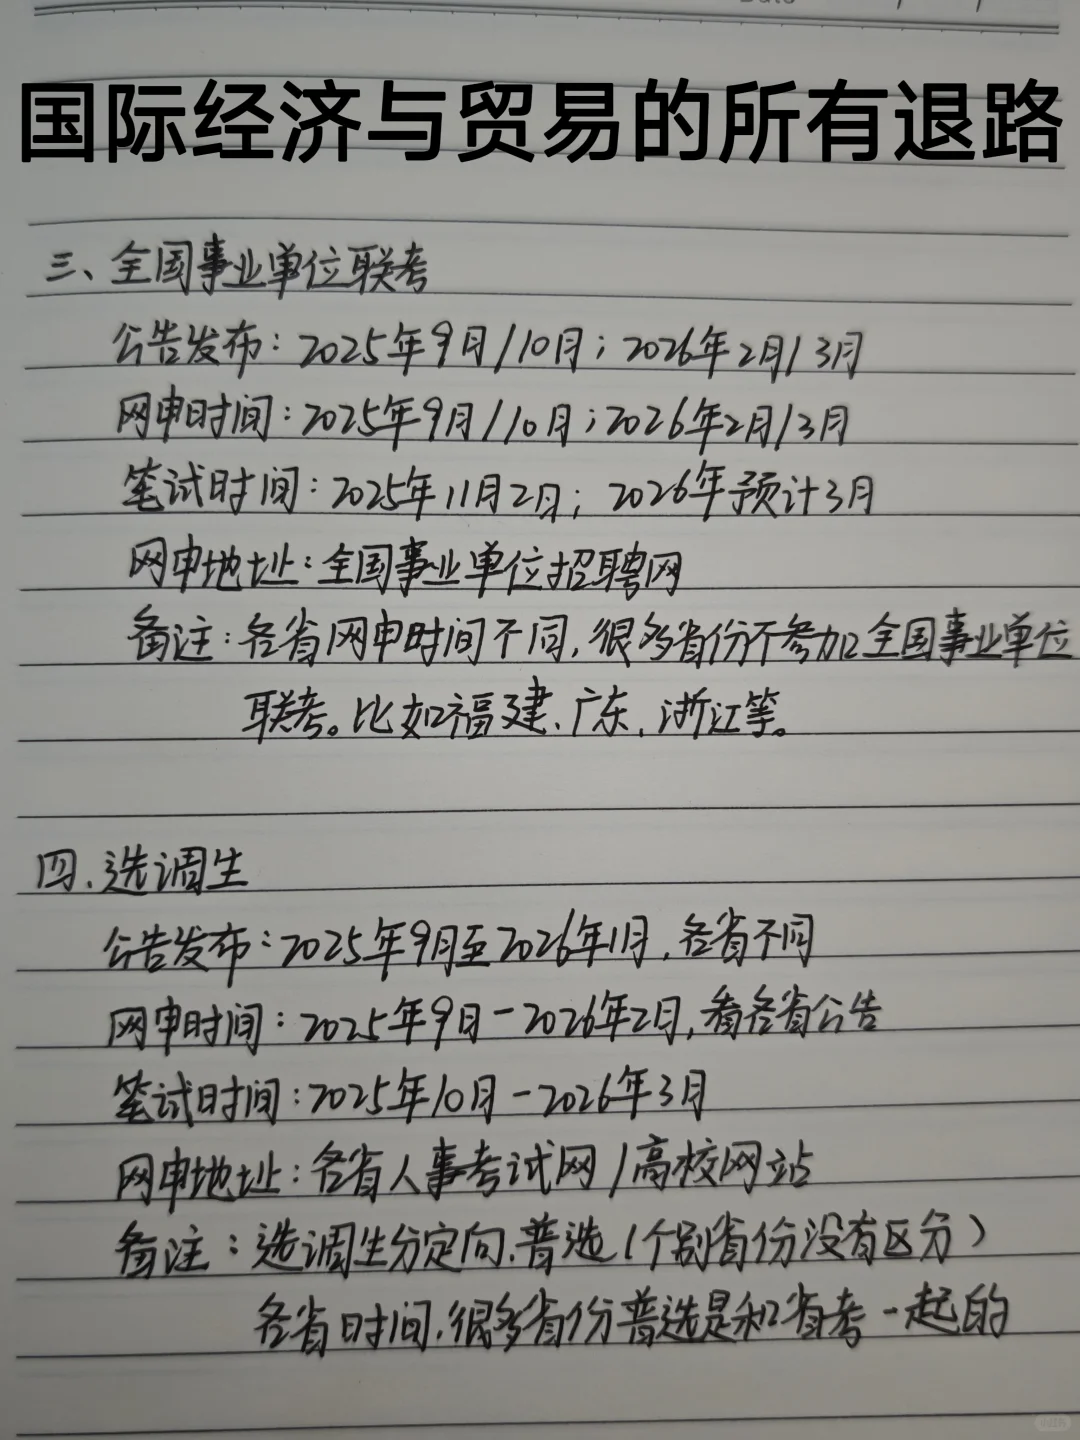 国际经济与贸易的所有退路
三、全国事业单位联考
公告发布：2025年9月/10月；2026年2月/3月
网申时间：2025年9月/10月；2026年2月/3月
笔试时间：2025年11月2日；2026年预计3月
网申地址：全国事业单位招聘网
备注：各省网申时间不同，很多省份不参加全国事业单位
联考。比如福建、广东、浙江等。
四、选调生
公告发布：2025年9月至2026年1月，各省不同
网申时间：2025年9月－2026年2月，看各省公告
笔试时间：2025年10月－2026年3月
网申地址：各省人事考试网/高校网站
备注：选调生分定向、普选（个别省份没有区分）
各省时间，很多省份普选是和省考一起的
小红书